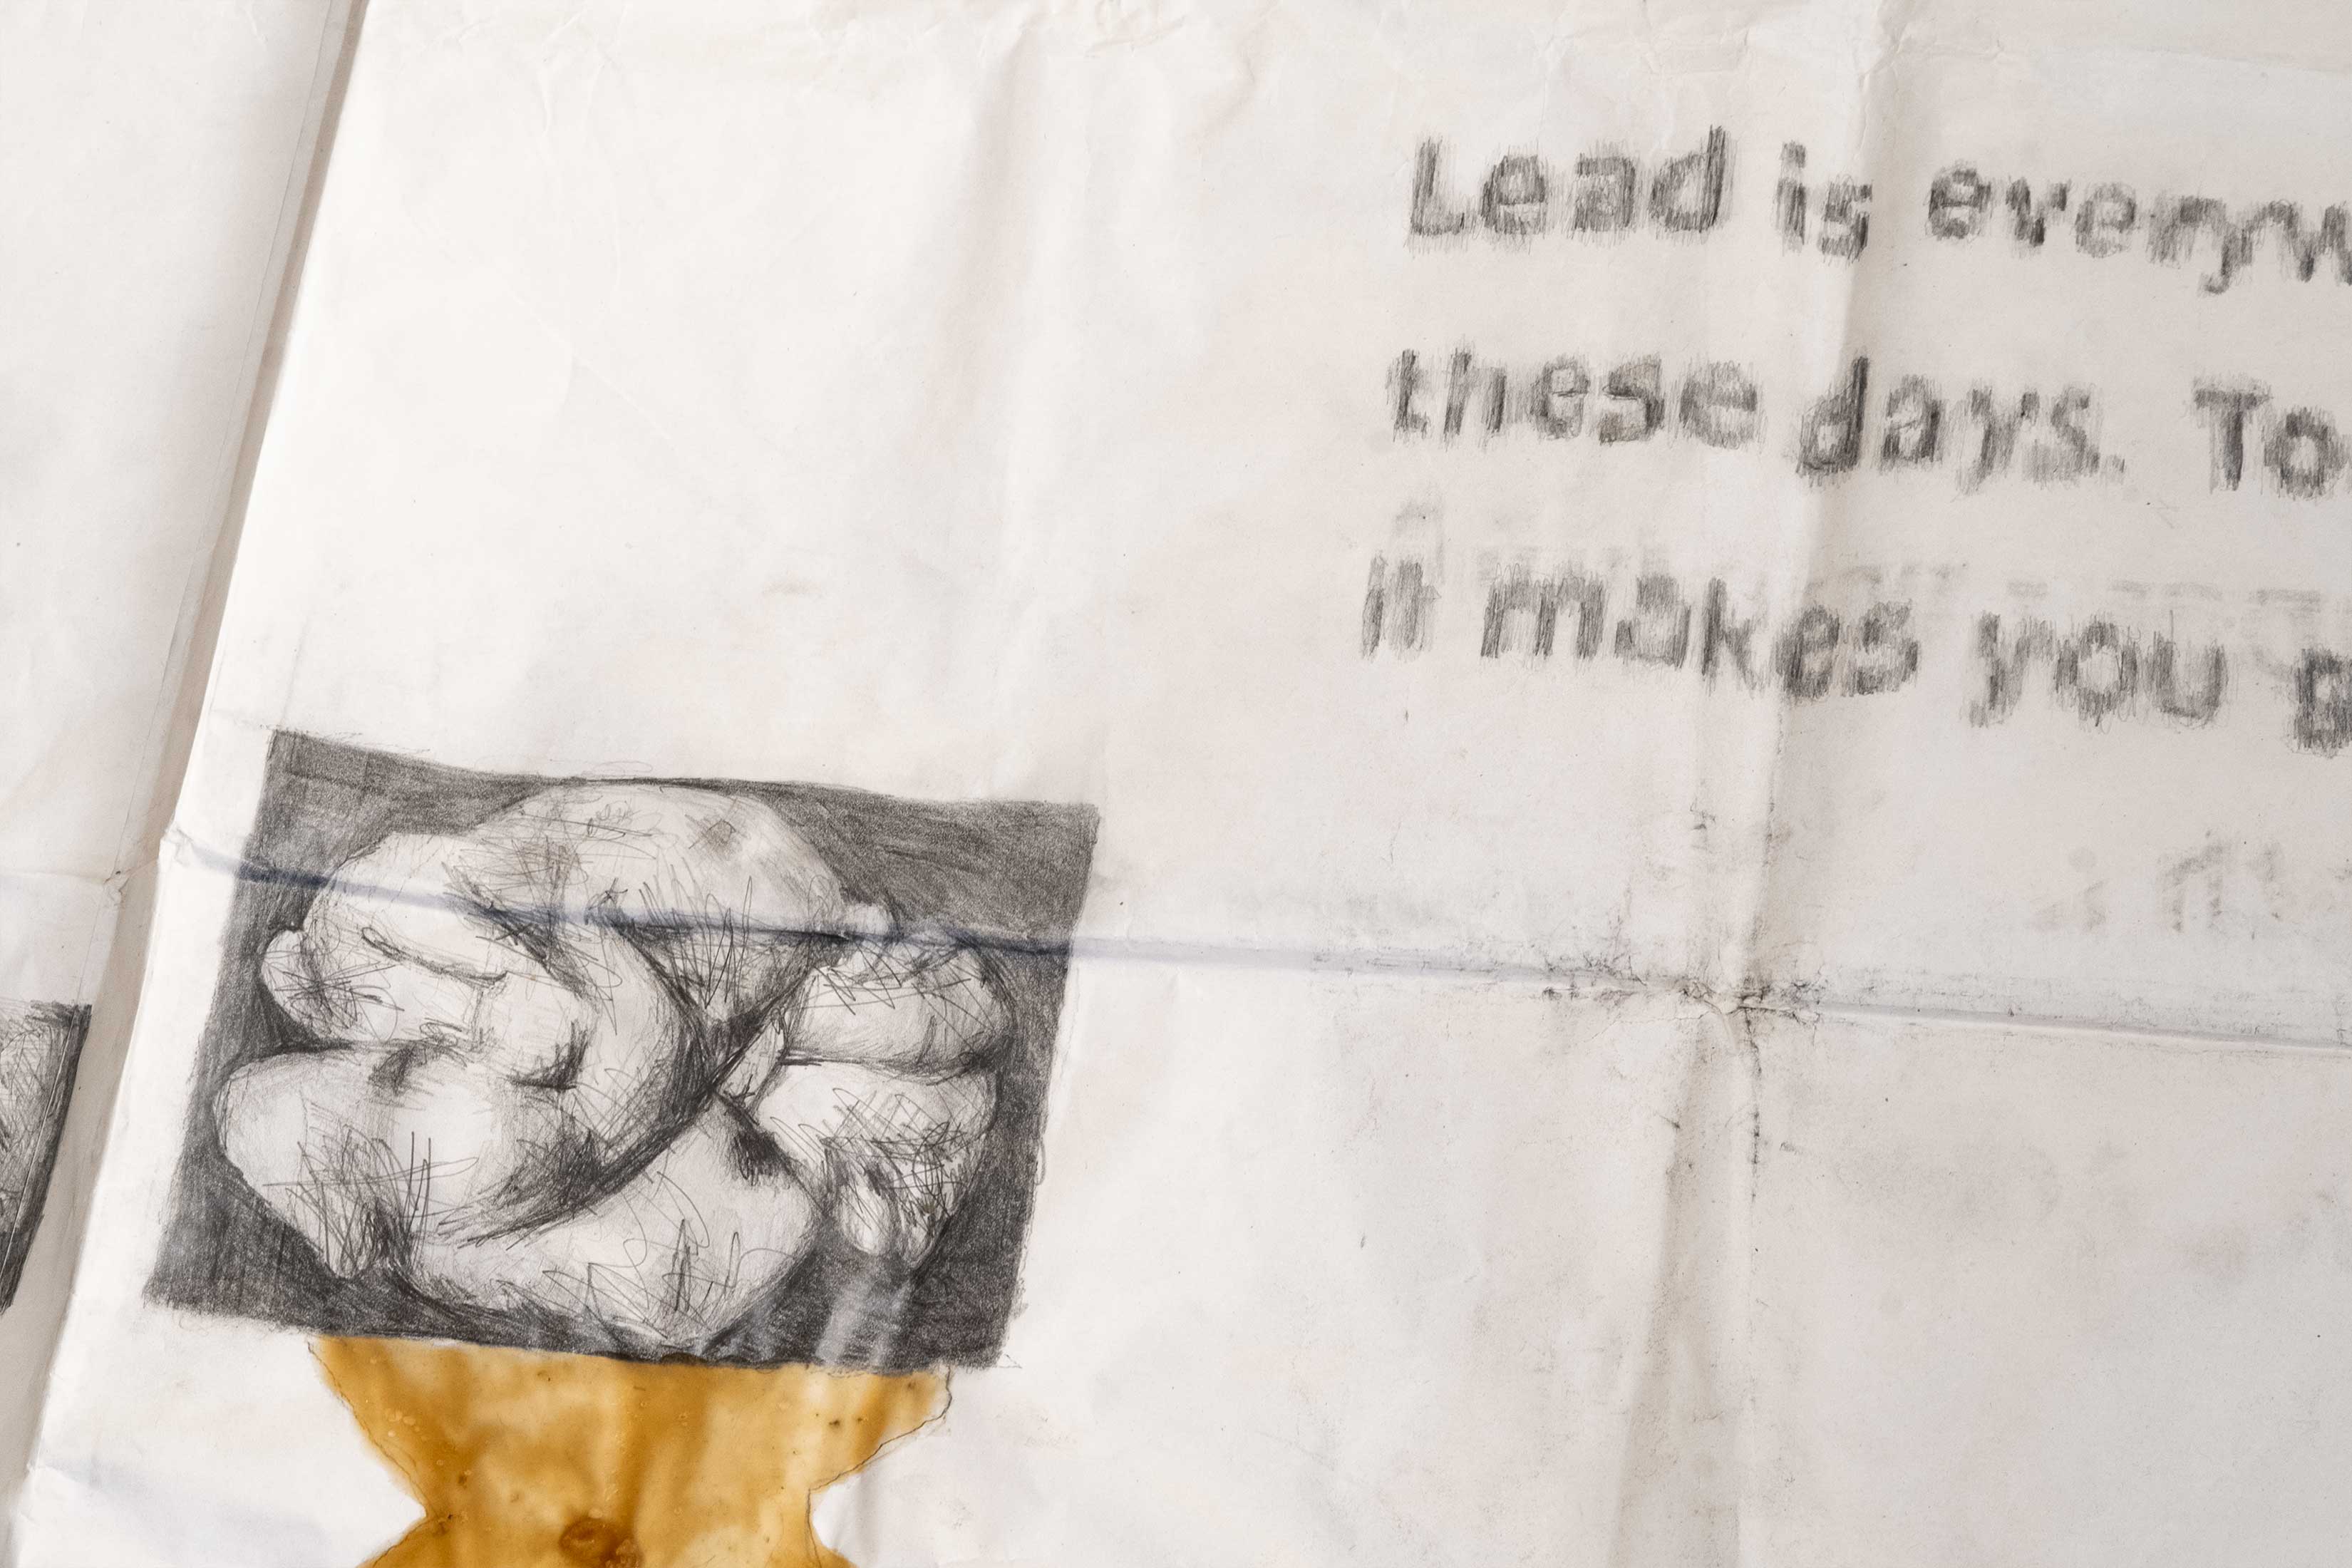 Lead is everyw
these days. To
it makes you